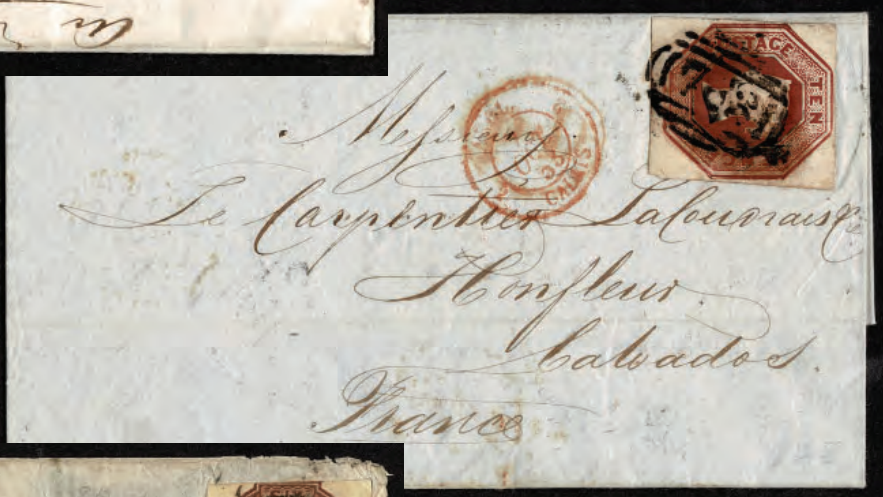 POSTAGE TEN
CALAIS
Messieurs
Le Carpentier Lacoudrais &Cie
Honfleur
Calvados
France